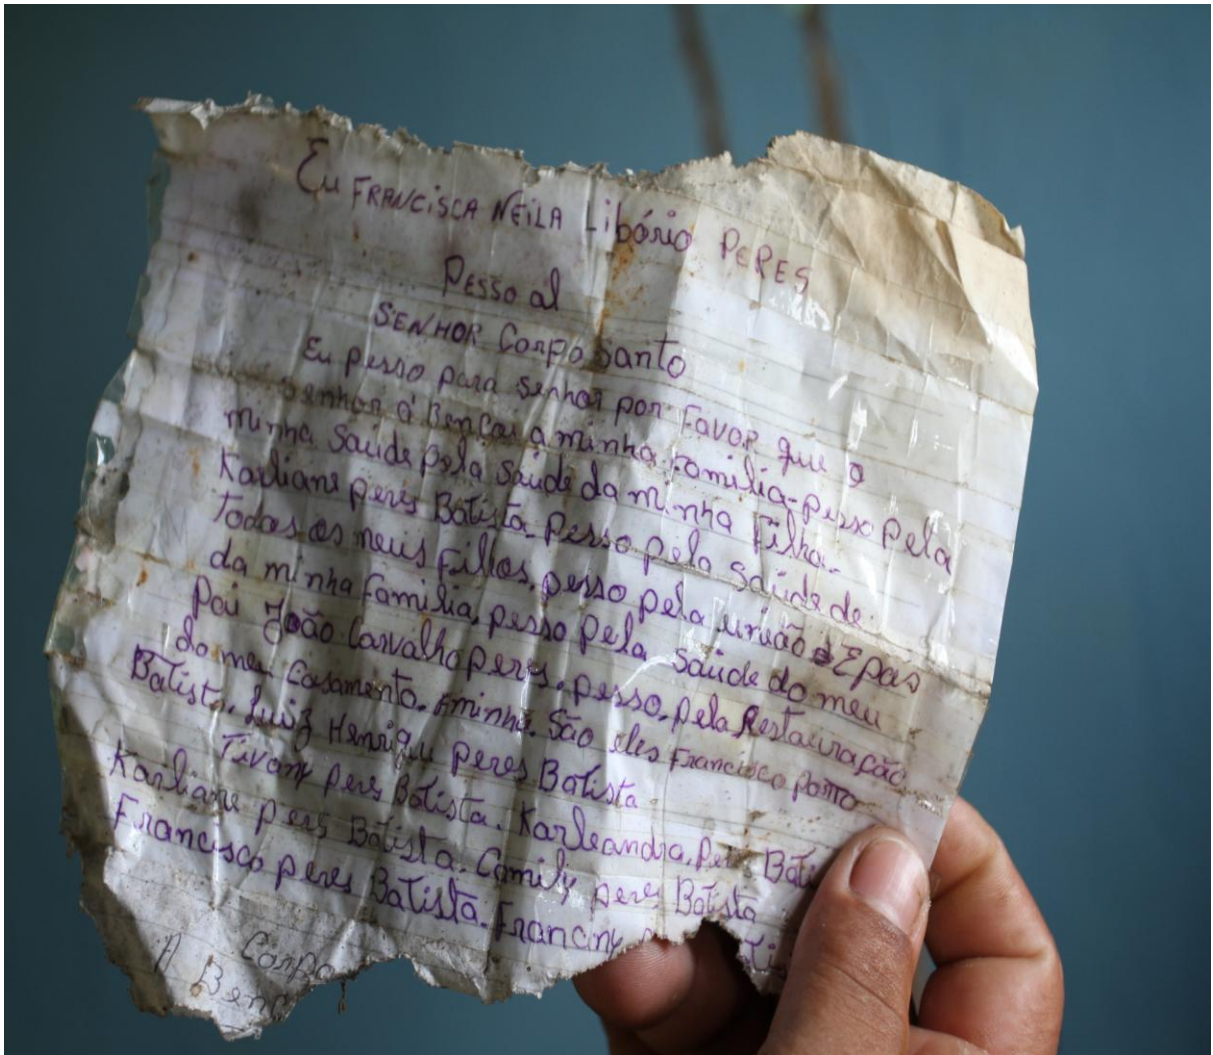 Eu FRANCISCA NEILA Libório PERES
Pesso al
SENHOR Corpo Santo
Eu pesso para senhor por Favor que o
senhor a Bençoi a minha Familia-pesso pela
minha Saúde pela Saúde da minha Filha.
Karliane peres Batista. Pesso pela saúde de
Todos os meus Filhos, pesso pela união E pas
da minha Familia, pesso pela saúde do meu
Pai João Carvalho peres. pesso, pela Restauração
do meu Casamento. São eles Francisco porto
Batista. Luiz Henriqu peres Batista
peres Batista. Karleandra, Bati
Karliane peres Batista. Camily peres Batista
Francisco peres Batista. Franciny
Corpo
A Benç